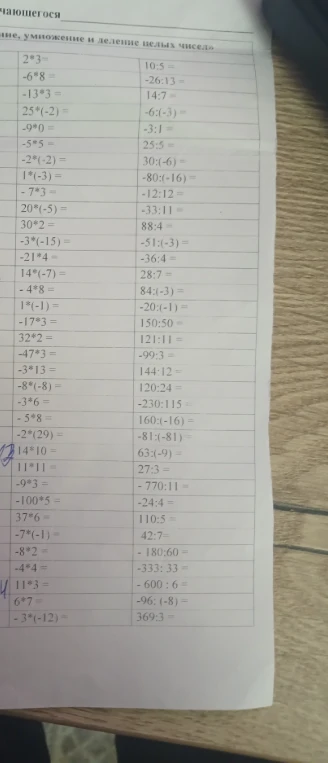 чающегося
ние, умножение и деление целых чисел»
2*3= 10:5 =
-6*8 = -26:13 =
-13*3 = 14:7 =
25*(-2) = -6:(-3) =
-9*0 = -3:1 =
-5*5 = 25:5 =
-2*(-2) = 30:(-6) =
1*(-3) = -80:(-16) =
- 7*3 = -12:12 =
20*(-5) = -33:11 =
30*2 = 88:4 =
-3*(-15) = -51:(-3) =
-21*4 = -36:4 =
14*(-7) = 28:7 =
- 4*8 = 84:(-3) =
1*(-1) = -20:(-1) =
-17*3 = 150:50 =
32*2 = 121:11 =
-47*3 = -99:3 =
-3*13 = 144:12 =
-8*(-8) = 120:24 =
-3*6 = -230:115 =
- 5*8 = 160:(-16) =
-2*(29) = -81:(-81) =
14*10 = 63:(-9) =
11*11 = 27:3 =
-9*3 = - 770:11 =
-100*5 = -24:4 =
37*6 = 110:5 =
-7*(-1) = 42:7=
-8*2 = - 180:60 =
-4*4 = -333: 33 =
11*3 = - 600 : 6 =
6*7 = -96: (-8) =
- 3*(-12) = 369:3 =